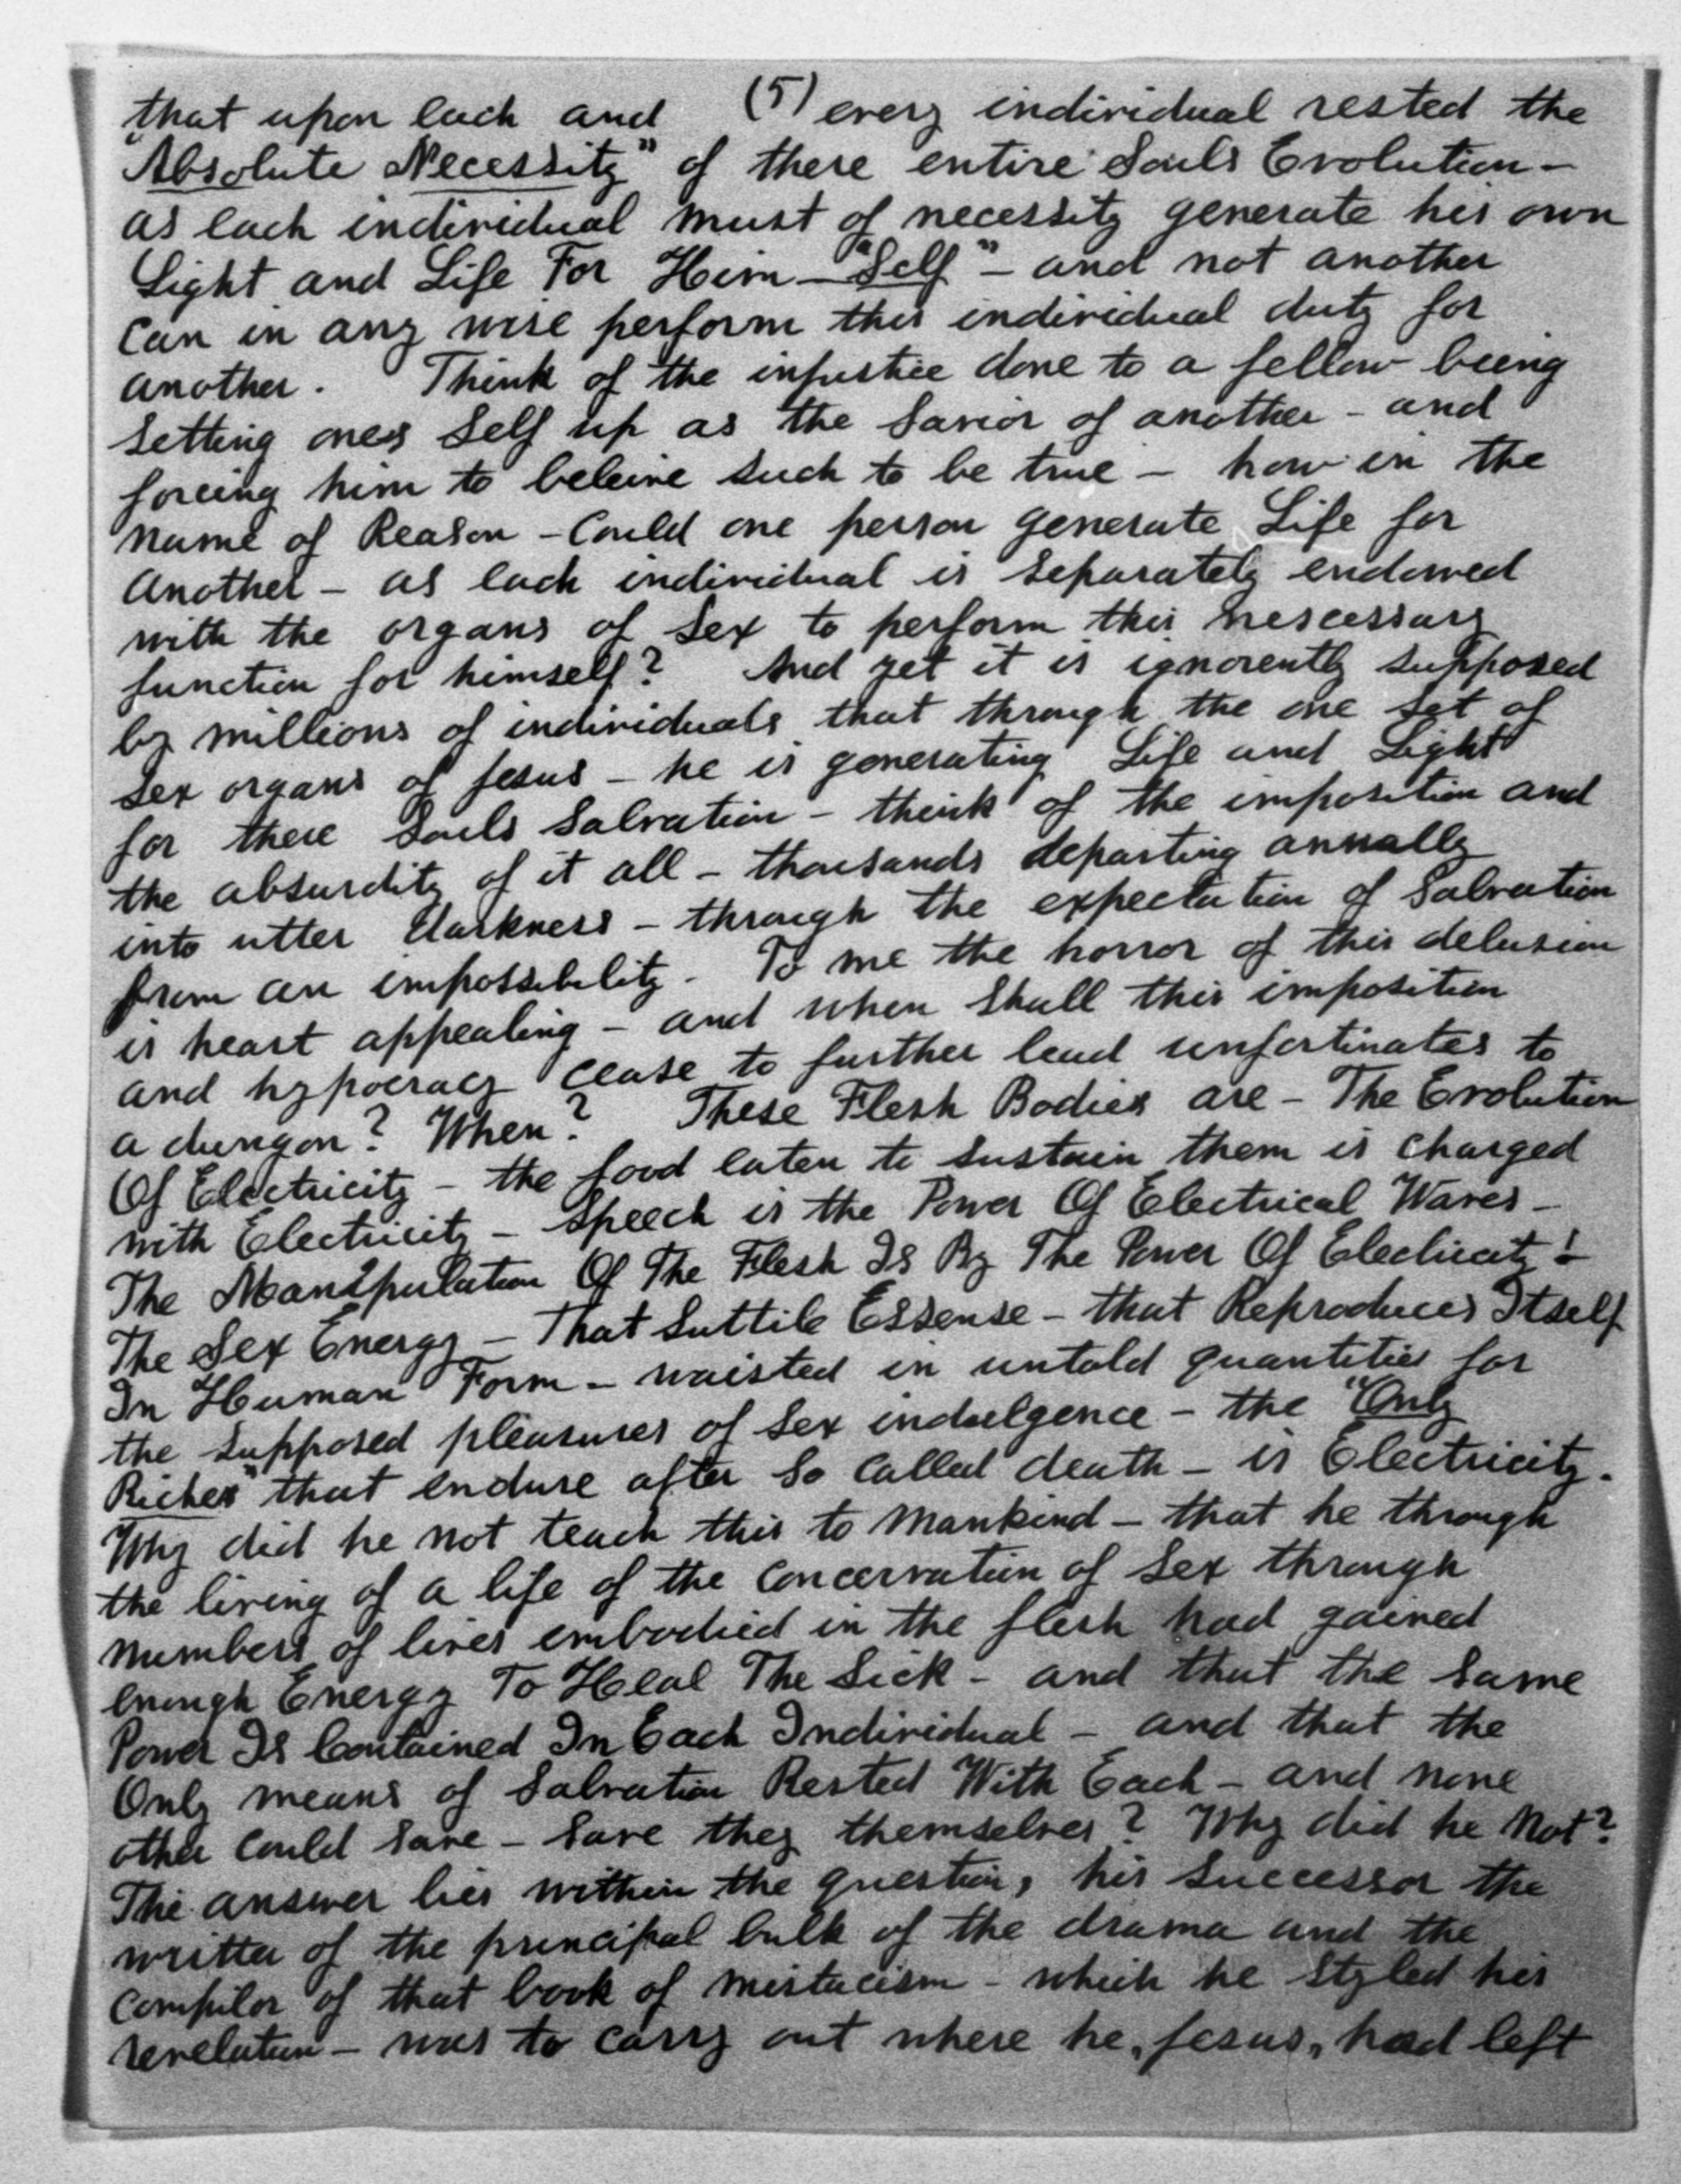 that upon each and (5) every individual rested the
"Absolute Necessity" of there entire Souls Evolution -
as each individual must of necessity generate his own
Light and Life For Him - "Self" - and not another
can in any wise perform this individual duty for
another. Think of the injustice done to a fellow being
setting ones Self up as the Savior of another - and
forcing him to beleive such to be true - how in the
name of Reason - Could one person generate Life for
Another - as each individual is separately endowed
with the organs of Sex to perform this nescessary
function for himself? And yet it is ignorently supposed
by millions of individuals that through the one set of
Sex organs of Jesus - he is generating Life and Light
for there Souls Salvation - think of the imposition and
the absurdity of it all - thousands departing annually
into utter darkness - through the expectation of Salvation
from an impossibility. To me the horror of this delusion
is heart appealing - and when shall this imposition
and hypocracy cease to further lead unfortinates to
a dungon? When? These Flesh Bodies are - The Evolution
Of Electricity - the food eaten to sustain them is charged
with Electricity - Speech is the Power Of Electrical Waves -
The Manipulation Of The Flesh Is By The Power Of Electricity! -
The Sex Energy - That Suttile Essense - that Reproduces Itself
In Human Form - waisted in untold quantities for
the supposed pleasures of Sex indulgence - the "Only
Riches" that endure after so called death - is Electricity.
Why did he not teach this to Mankind - that he through
the living of a life of the concervation of Sex through
numbers of lives embodied in the flesh had gained
enough Energy To Heal The Sick - and that the same
Power Is Contained In Each Individual - and that the
Only means of Salvation Rested With Each - and none
other could save - save they themselves? Why did he Not?
The answer lies within the question, his Successor the
writter of the principal bulk of the drama and the
compilor of that book of mistacism - which he styled his
revelation - was to carry out where he, Jesus, had left